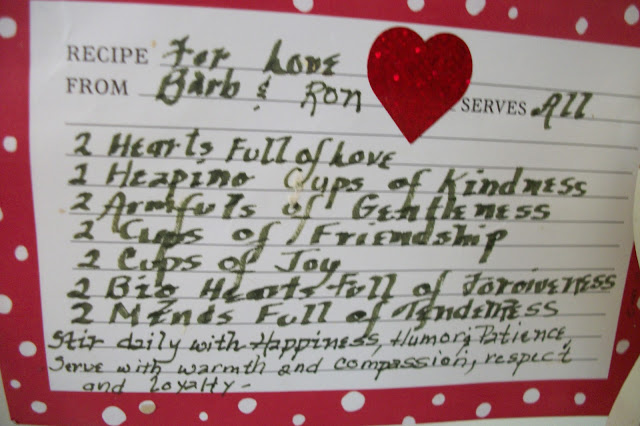 RECIPE For Love
FROM Barb & Ron SERVES All
2 Hearts Full of Love
2 Heaping Cups of Kindness
2 Armfuls of Gentleness
2 Cups of Friendship
2 Cups of Joy
2 Big Hearts Full of Forgiveness
2 Minds Full of Tenderness
Stir daily with Happiness, Humor, Patience,
Serve with warmth and compassion, respect
and loyalty -